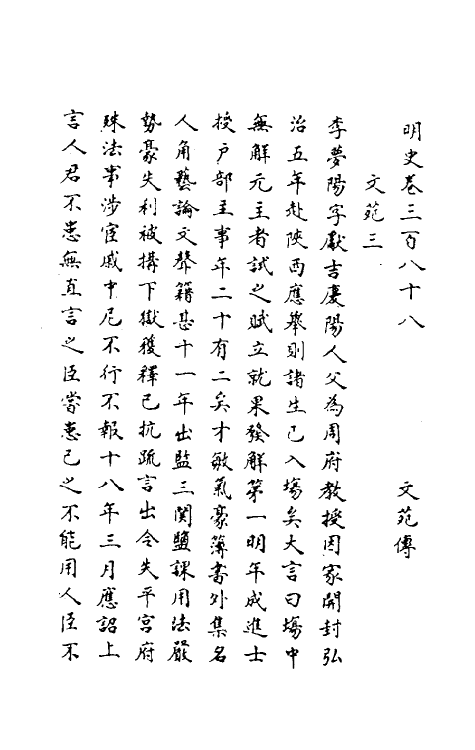 明史卷三百八十八
文苑傳
文苑三
李夢陽字獻吉慶陽人父為周府教授因家開封弘
治五年赴陝西應舉則諸生已入場矣大言曰場中
無解元主者試之賦立就果發解第一明年成進士
授户部主事年二十有二矣才敏氣豪簿書外集名
人角藝論文聲籍甚十一年出監三関鹽課用法嚴
勢豪失利被搆下獄獲釋已抗疏言出令失平宮府
殊法事涉宦戚中尼不行不報十八年三月應詔上
言人君不患無直言之臣當患己之不能用人臣不